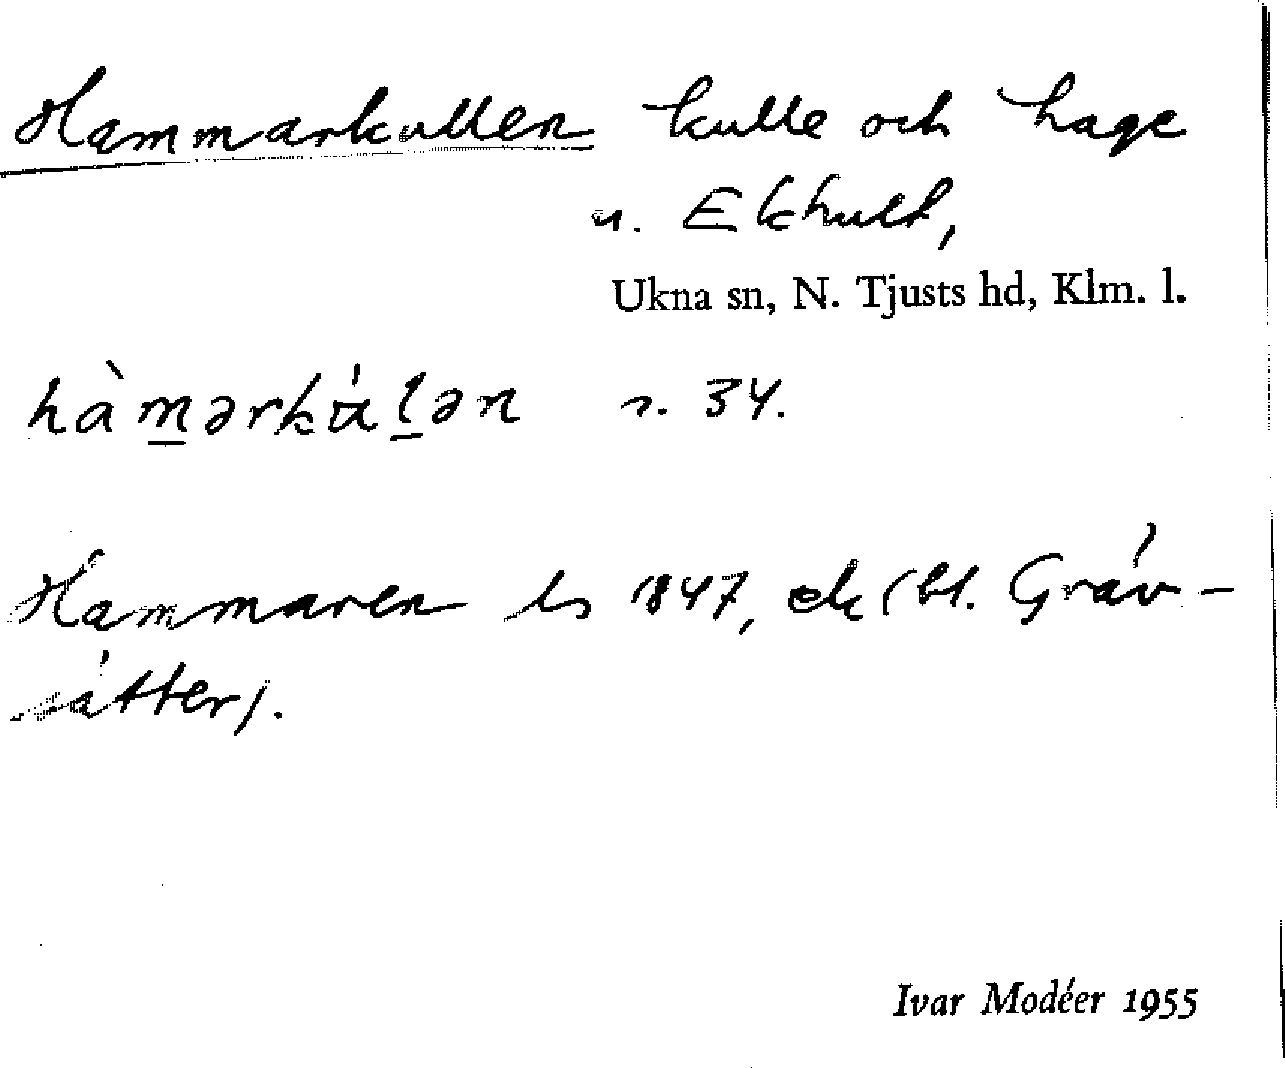 Hammarkullen kulle och hage
u. Ekhult,
Ukna sn, N. Tjusts hd, Klm. l.
hàm̲ərkúl̲ən r. 34.
Hammaren ls 1847, ek (bl. Gråv-
såtter).
Ivar Modéer 1955